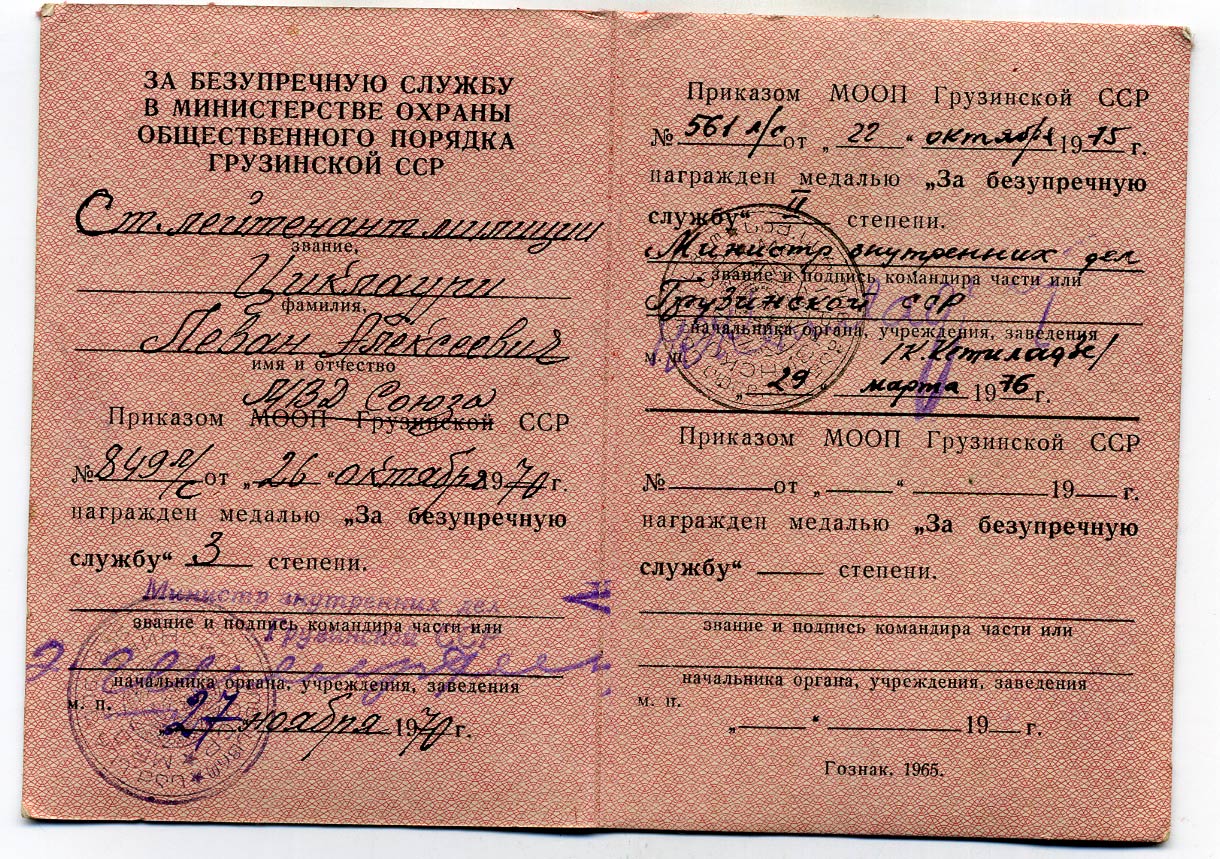 ЗА БЕЗУПРЕЧНУЮ СЛУЖБУ
В МИНИСТЕРСТВЕ ОХРАНЫ
ОБЩЕСТВЕННОГО ПОРЯДКА
ГРУЗИНСКОЙ ССР
Ст. лейтенант милиции
звание,
Циклаури
фамилия,
Леван Алексеевич
имя и отчество
МВД Союза
Приказом МООП Грузинской ССР
№ 849 л/с от „ 26 “ октября 1970 г.
награжден медалью „За безупречную
службу“ 3 степени.
Министр внутренних дел
звание и подпись командира части или
Грузинской ССР
начальника органа, учреждения, заведения
м. п.
27 ноября 1970 г.
Приказом МООП Грузинской ССР
№ 561 л/с от „ 22 “ октября 1975 г.
награжден медалью „За безупречную
службу“ II степени.
Министр внутренних дел
звание и подпись командира части или
Грузинской ССР
начальника органа, учреждения, заведения
м. п. /К. Кетиладзе/
„ 29 „ марта 1976 г.
Приказом МООП Грузинской ССР
№ от „ “ 19 г.
награжден медалью „За безупречную
службу“ степени.
звание и подпись командира части или
начальника органа, учреждения, заведения
м. п.
„ “ 19 г.
Гознак. 1965.